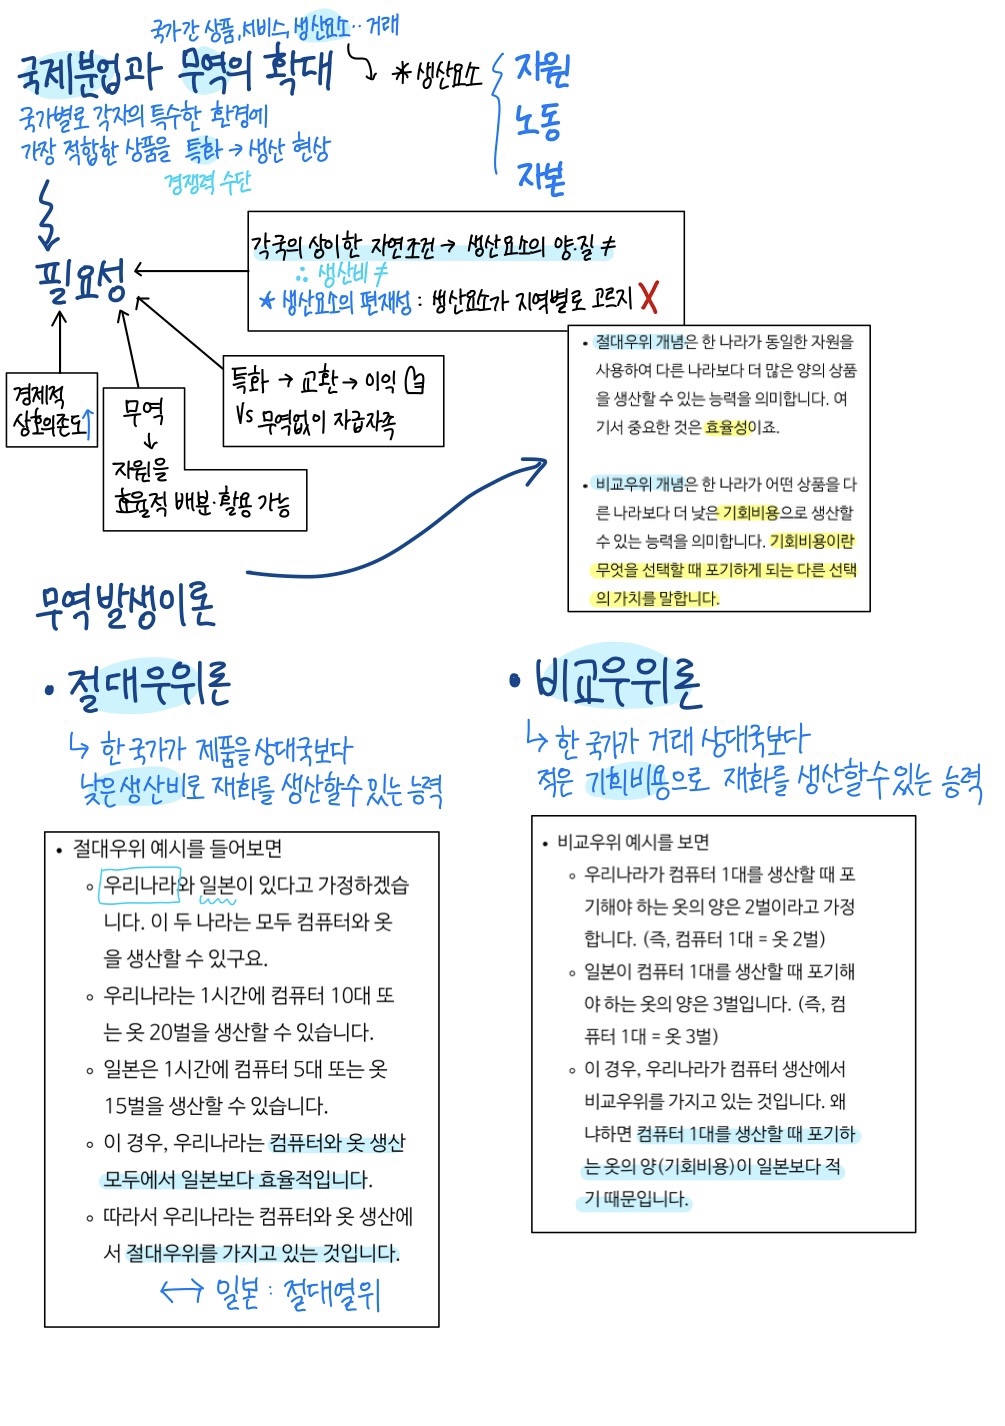 국가간 상품,서비스, 생산요소‥거래
국제분업과 무역의 확대
* 생산요소
자원
노동
자본
국가별로 각자의 특수한 환경에
가장 적합한 상품을 특화 → 생산 현상
경쟁력 수단
필요성
각국의 상이한 자연조건 → 생산요소의 양·질 ≠
∴ 생산비 ≠
* 생산요소의 편재성 : 생산요소가 지역별로 고르지 X
특화 → 교환 → 이익
VS 무역없이 자급자족
경제적
상호의존도↑
무역
↓
자원을
효율적 배분·활용 가능
• 절대우위 개념은 한 나라가 동일한 자원을
사용하여 다른 나라보다 더 많은 양의 상품
을 생산할 수 있는 능력을 의미합니다. 여
기서 중요한 것은 효율성이죠.
• 비교우위 개념은 한 나라가 어떤 상품을 다
른 나라보다 더 낮은 기회비용으로 생산할
수 있는 능력을 의미합니다. 기회비용이란
무엇을 선택할 때 포기하게 되는 다른 선택
의 가치를 말합니다.
무역발생이론
• 절대우위론
↳ 한 국가가 제품을 상대국보다
낮은 생산비로 재화를 생산할수 있는 능력
• 절대우위 예시를 들어보면
◦ 우리나라와 일본이 있다고 가정하겠습
니다. 이 두 나라는 모두 컴퓨터와 옷
을 생산할 수 있구요.
◦ 우리나라는 1시간에 컴퓨터 10대 또
는 옷 20벌을 생산할 수 있습니다.
◦ 일본은 1시간에 컴퓨터 5대 또는 옷
15벌을 생산할 수 있습니다.
◦ 이 경우, 우리나라는 컴퓨터와 옷 생산
모두에서 일본보다 효율적입니다.
◦ 따라서 우리나라는 컴퓨터와 옷 생산에
서 절대우위를 가지고 있는 것입니다.
↔ 일본 : 절대열위
• 비교우위론
↳ 한 국가가 거래 상대국보다
적은 기회비용으로 재화를 생산할수있는 능력
• 비교우위 예시를 보면
◦ 우리나라가 컴퓨터 1대를 생산할 때 포
기해야 하는 옷의 양은 2벌이라고 가정
합니다. (즉, 컴퓨터 1대 = 옷 2벌)
◦ 일본이 컴퓨터 1대를 생산할 때 포기해
야 하는 옷의 양은 3벌입니다. (즉, 컴
퓨터 1대 = 옷 3벌)
◦ 이 경우, 우리나라가 컴퓨터 생산에서
비교우위를 가지고 있는 것입니다. 왜
냐하면 컴퓨터 1대를 생산할 때 포기하
는 옷의 양(기회비용)이 일본보다 적
기 때문입니다.